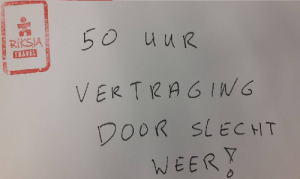 RiKSJA
TRAVEL
50 UUR
VERTRAGING
DOOR SLECHT
WEER!